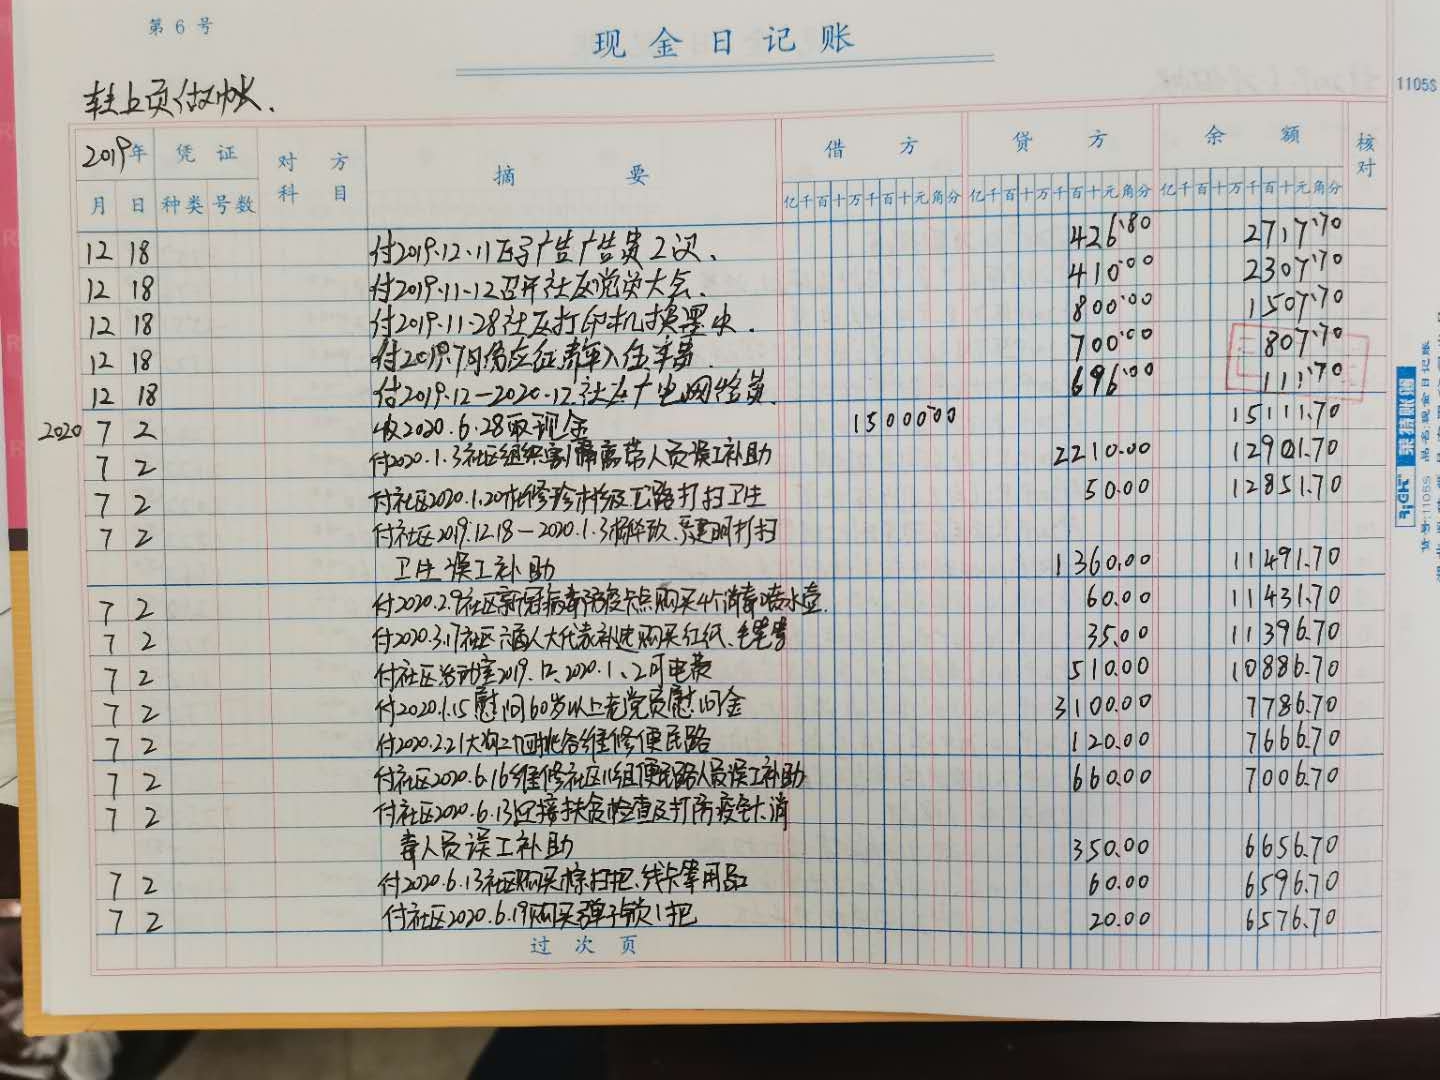 第 6 号
现金日记账
1105S
2019年 凭证 对方科目 摘要 借方 贷方 余额 核对
月 日 种类 号数 亿千百十万千百十元角分 亿千百十万千百十元角分 亿千百十万千百十元角分
12 18 付2019.12.11 广告广告费2次. 426.80 2717.70
12 18 付2019.11-12召开社区党员大会. 410.00 2307.70
12 18 付2019.11.28社区打印机换墨水. 800.00 1507.70
12 18 付2019.7月份应征青年入住车费 700.00 807.70
12 18 付2019.12-2020.12社区广电网络费. 696.00 111.70
2020 7 2 收2020.6.28取现金 15000.00 15111.70
7 2 付2020.1.3社区组织割隔离带人员误工补助 2210.00 12901.70
7 2 付社区2020.1.20 公路打扫卫生 50.00 12851.70
7 2 付社区2019.12.18-2020.1.3 打扫
卫生误工补助 1360.00 11491.70
7 2 付2020.2.9社区新冠病毒防疫卡点购买4个消毒喷水壶. 60.00 11431.70
7 2 付2020.3.17社区 人大代表补选购买红纸、毛笔等 35.00 11396.70
7 2 付社区 2019.12、2020.1、2月电费 510.00 10886.70
7 2 付2020.1.15慰问60岁以上老党员慰问金 3100.00 7786.70
7 2 付2020.2.21大沟 维修便民路 120.00 7666.70
7 2 付社区2020.6.16维修社区11组便民路人员误工补助 660.00 7006.70
7 2 付社区2020.6.13迎接扶贫检查及打防疫针、消
毒人员误工补助 350.00 6656.70
7 2 付2020.6.13社区购买棕扫把、线卡等用品 60.00 6596.70
7 2 付社区2020.6.19购买弹子锁1把 20.00 6576.70
过次页